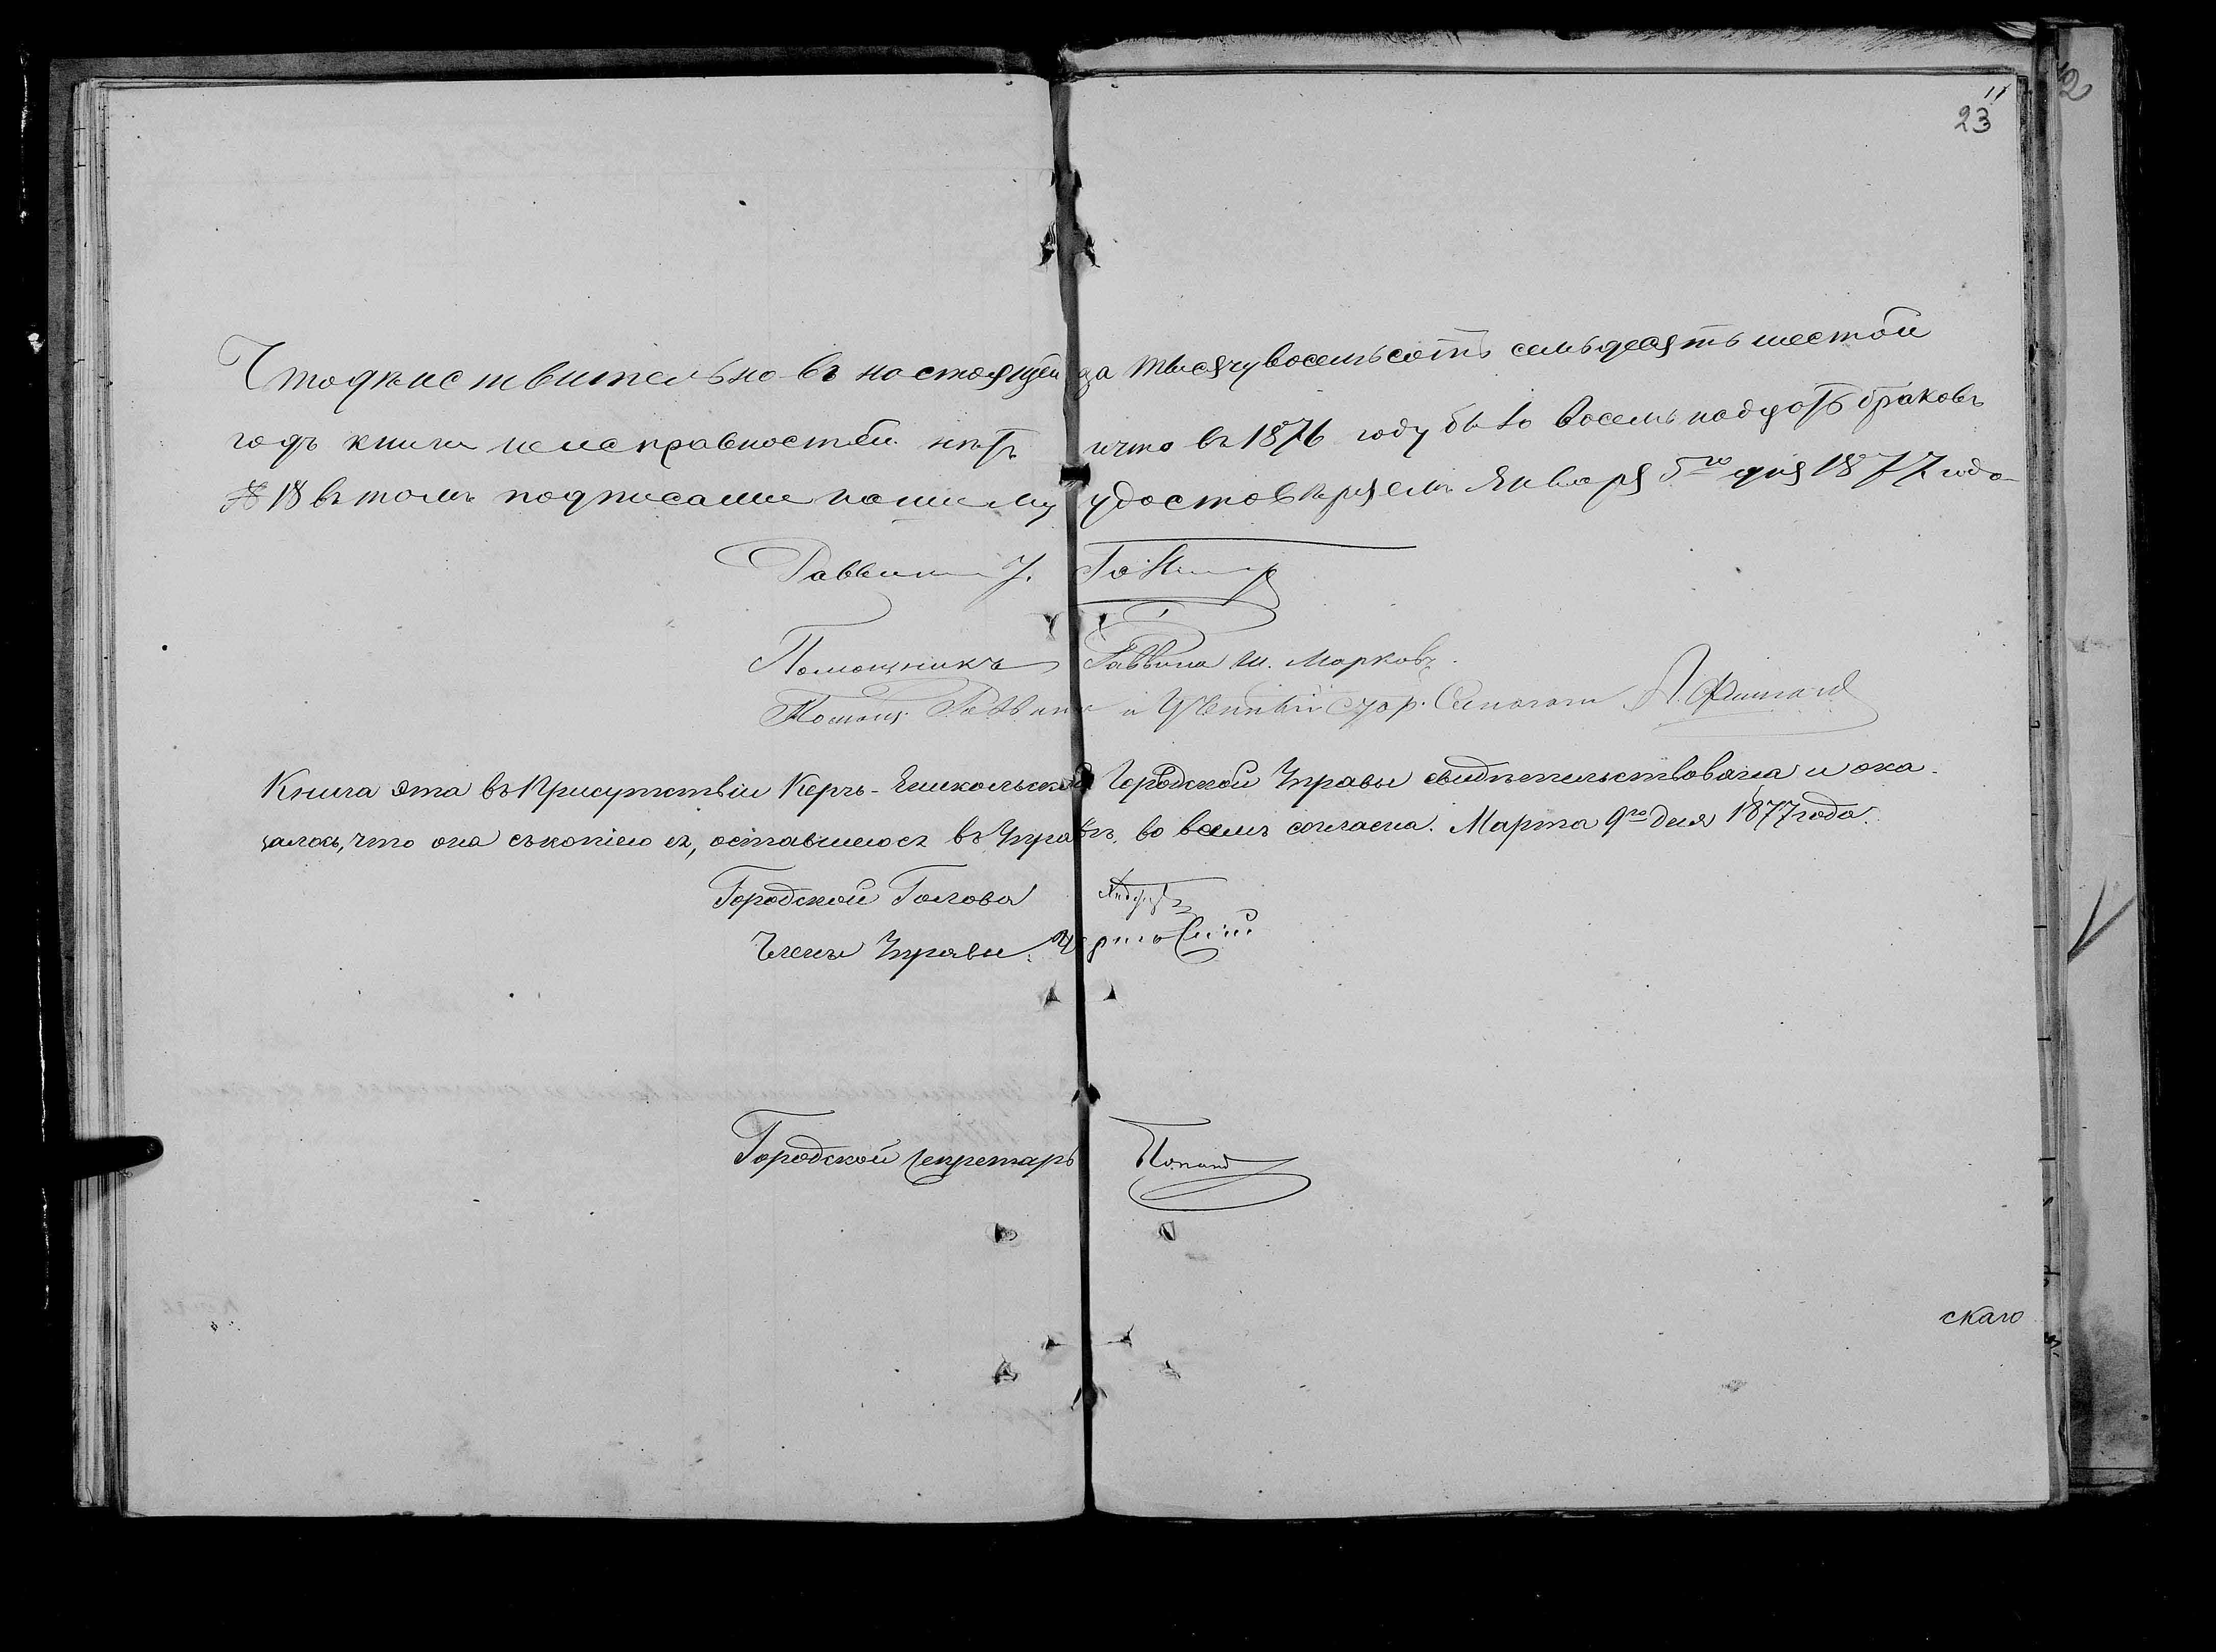 11
23
Что дѣйствительно въ настоящей за тысячу восемьсотъ семьдесятъ шестой
годъ книги неисправностей нѣтъ и что въ 1876 году было восемь надцать браковъ
№ 18 въ томъ подписами нашему удостовѣряемъ Января 5го дня 1877 года
Раввинъ
Помощникъ Раввина Ш. Марковъ
Помощ. Раввина и Ученый Синагоги
Книга эта въ Присутствіи Керчь-Еникольской Городской Управы свидѣтельствована и ока-
залось, что она съ копіею ея, оставшеюся въ Управѣ, во всемъ согласна. Марта 9го дня 1877 года.
Городской Голова
Члены Управы
Городской Секретарь
скаго
2